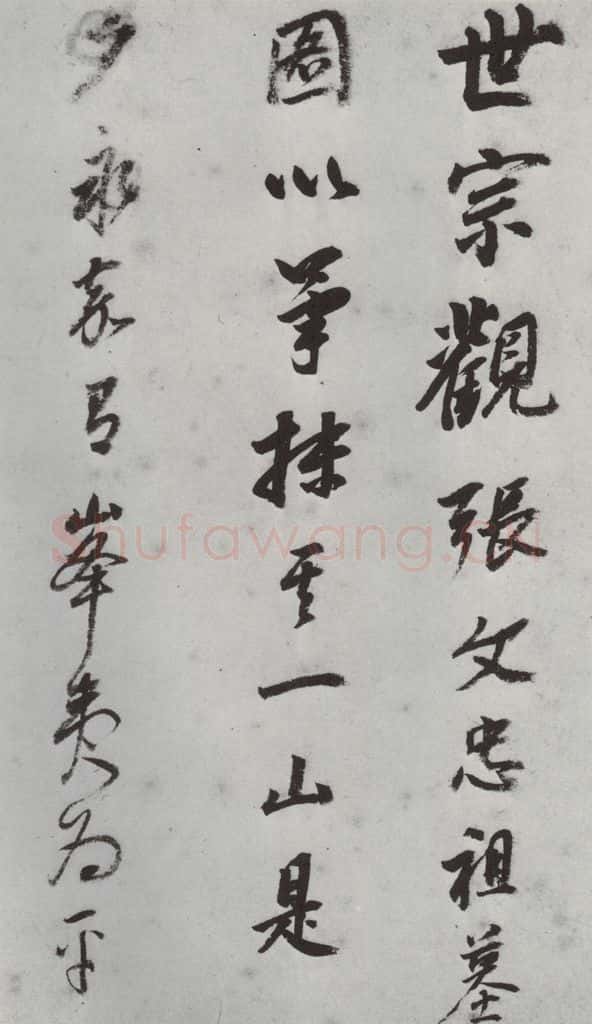 世宗觀張文忠祖墓
圖以筆抹其一山是
夕永嘉有峯夷為平
Shufawang.cn